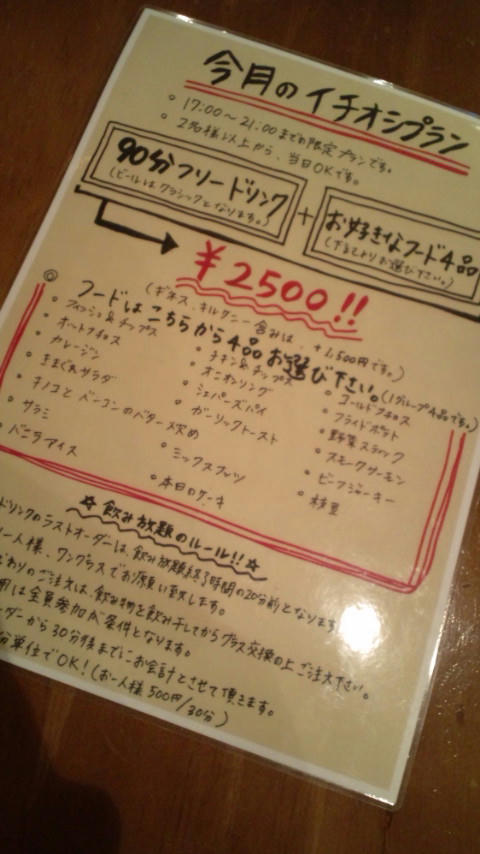 今月のイチオシプラン
• 17:00～21:00までの限定プランです。
• 2名様以上から、当日OKです。
90分フリードリンク
(ビールはクラシックとなります。)
+
お好きなフード4品
(下記よりお選び下さい。)
¥2500!!
(ギネス、キルケニー含みは、+1,500円です。)
◎ フードはこちらから4品お選び下さい。(1グループ4品です。)
• フィッシュ&チップス
• ホットナチョス
• カレージン
• きまぐれサラダ
• キノコとベーコンのバター炒め
• サラミ
• バニラアイス
• チキン&チップス
• オニオンリング
• シェパーズパイ
• ガーリックトースト
• ミックスナッツ
• 本日のケーキ
• コールドナチョス
• フライドポテト
• 野菜スティック
• スモークサーモン
• ビーフジャーキー
• 枝豆
☆飲み放題のルール!!☆
ドリンクのラストオーダーは、飲み放題終了時間の20分前となります
一人様、ワングラスでお願い致します。
わりのご注文は、飲み物を飲み干してからグラス交換の上ご注文下さい。
用は全員参加が条件となります。
ーダーから30分後までにお会計とさせて頂きます。
単位でOK!(お一人様500円/30分)